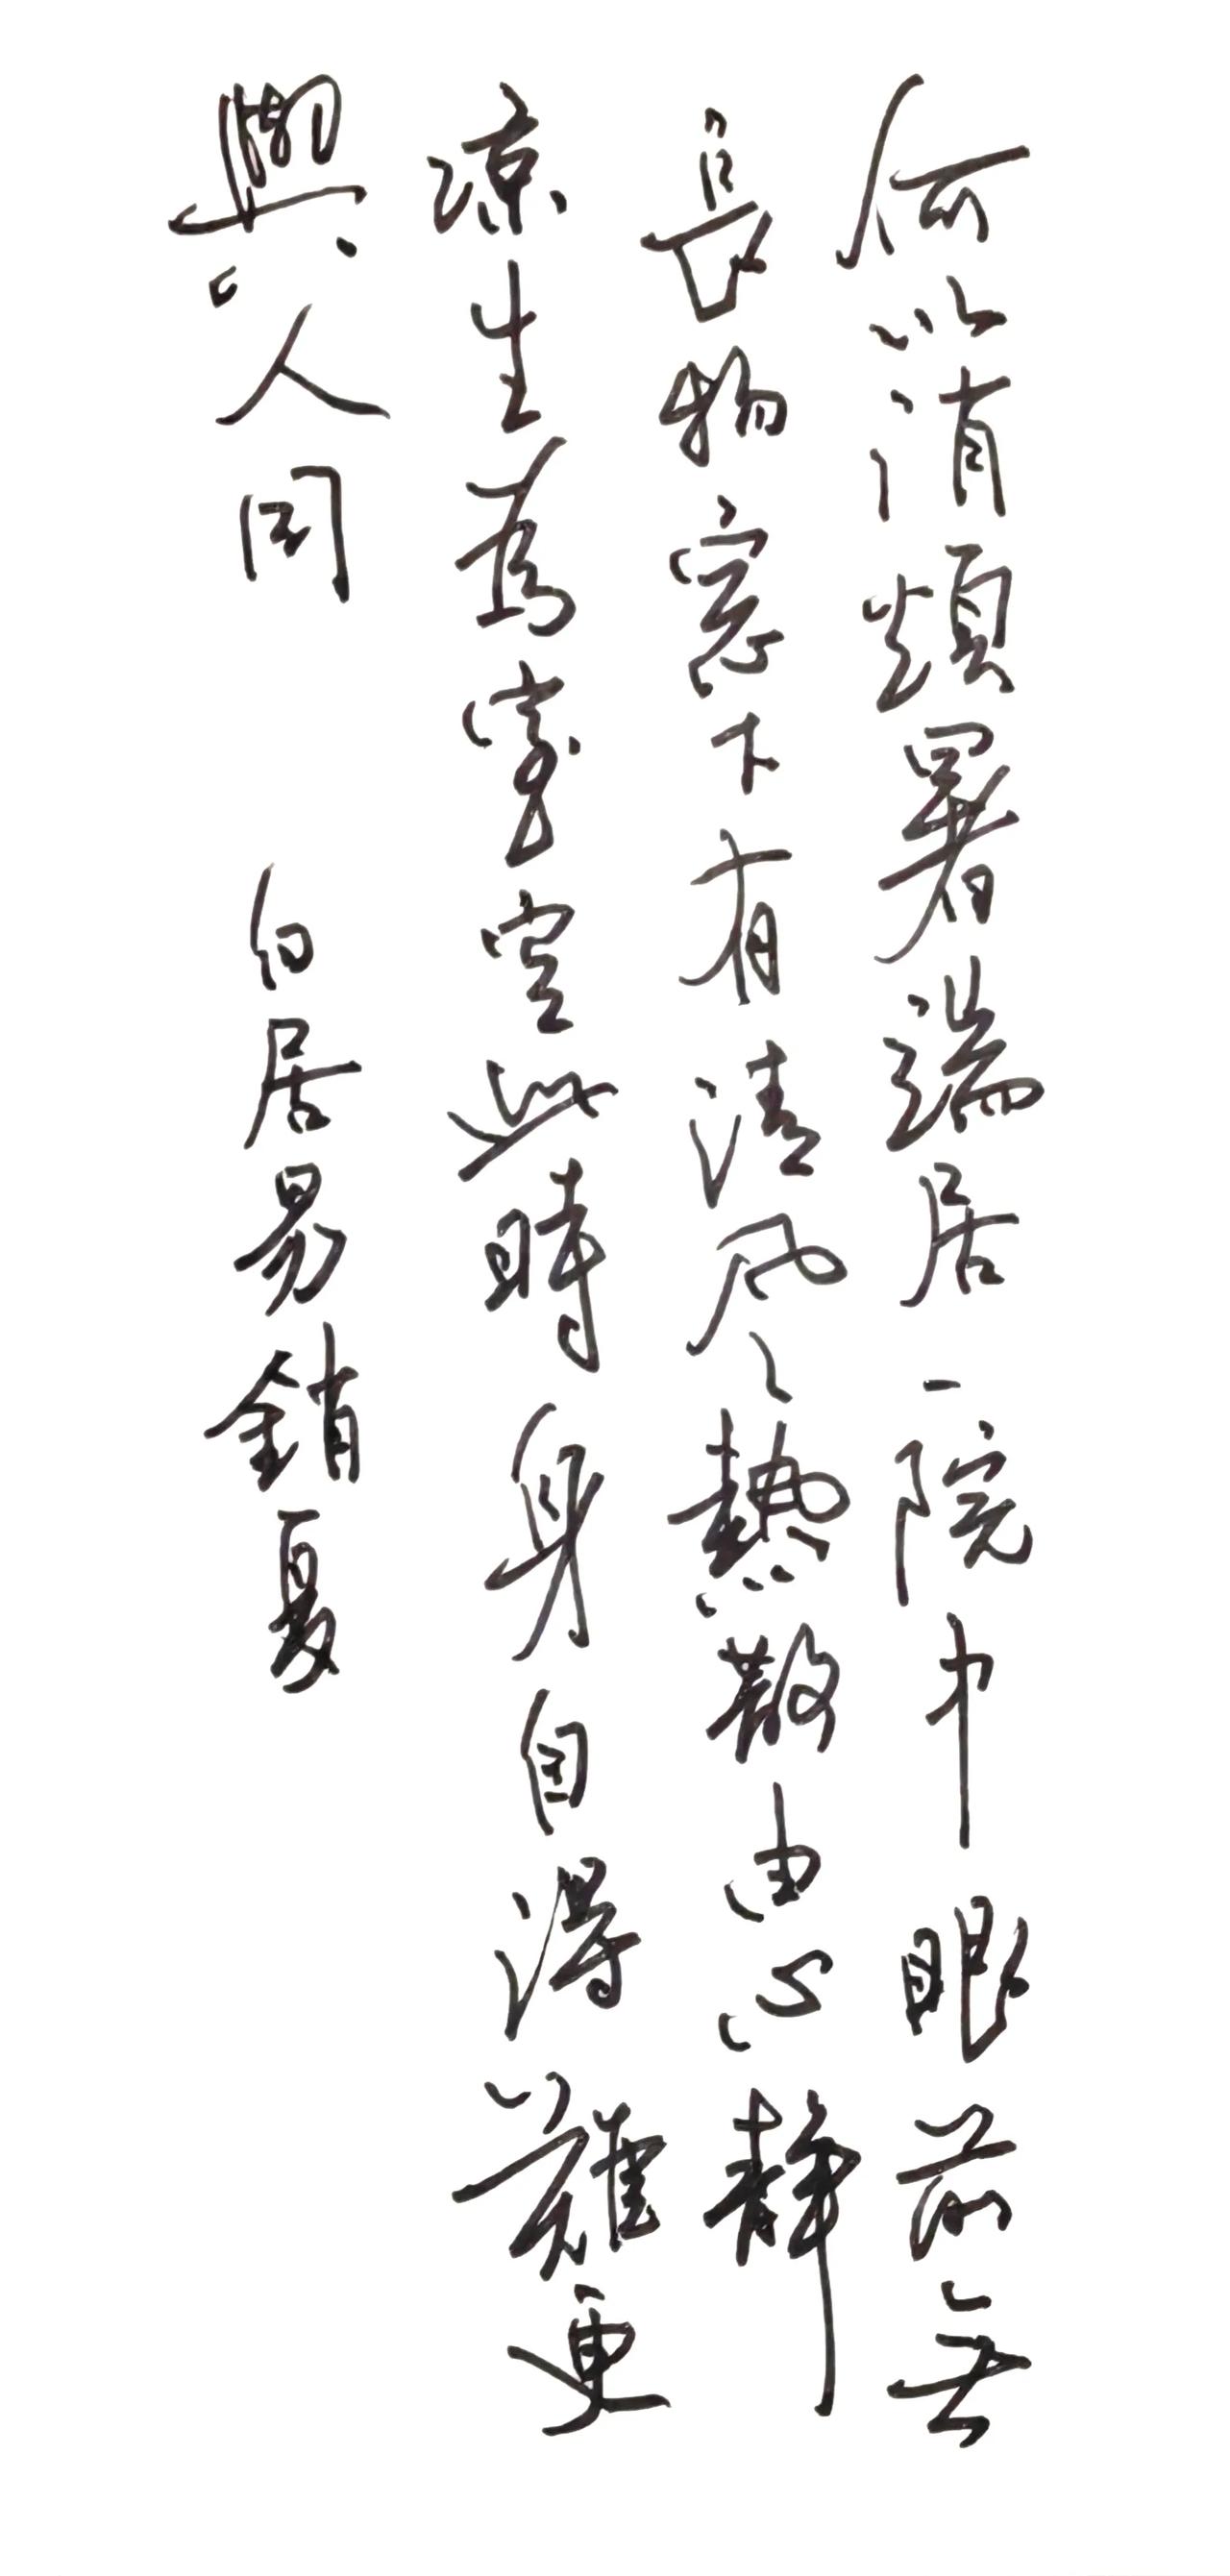 何以消煩暑端居一院中眼前無
長物窓下有清風熱散由心静
凉生為室空此時身自得難更
與人同 白居易銷夏